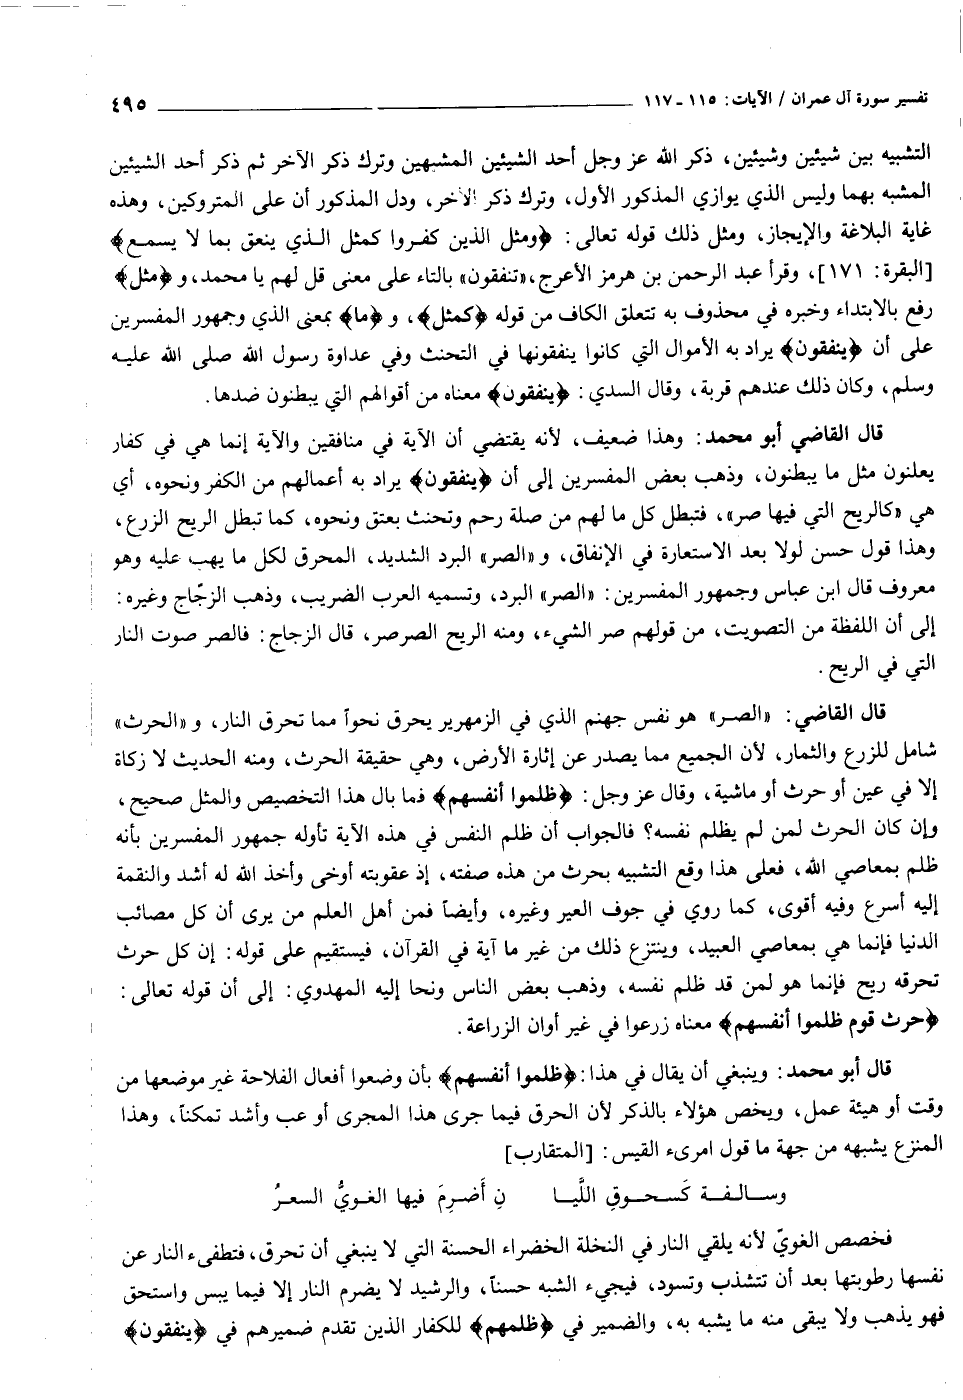 تفسير سورة آل عمران / الآيات: ١١٥ ـ ١١٧ ٤٩٥
التشبيه بين شيئين وشيئين، ذكر الله عز وجل أحد الشيئين المشبهين وترك ذكر الآخر ثم ذكر أحد الشيئين
المشبه بهما وليس الذي يوازي المذكور الأول، وترك ذكر الآخر، ودل المذكور أن على المتروكين، وهذه
غاية البلاغة والإيجاز، ومثل ذلك قوله تعالى: ﴿ومثل الذين كفروا كمثل الذي ينعق بما لا يسمع﴾
[البقرة: ١٧١]، وقرأ عبد الرحمن بن هرمز الأعرج، «تنفقون» بالتاء على معنى قل لهم يا محمد، و﴿مثل﴾
رفع بالابتداء وخبره في محذوف به تتعلق الكاف من قوله ﴿كمثل﴾، و ﴿ما﴾ بمعنى الذي وجمهور المفسرين
على أن ﴿ينفقون﴾ يراد به الأموال التي كانوا ينفقونها في التحنث وفي عداوة رسول الله صلى الله عليه
وسلم، وكان ذلك عندهم قربة، وقال السدي: ﴿ينفقون﴾ معناه من أقوالهم التي يبطنون ضدها.
قال القاضي أبو محمد: وهذا ضعيف، لأنه يقتضي أن الآية في منافقين والآية إنما هي في كفار
يعلنون مثل ما يبطنون، وذهب بعض المفسرين إلى أن ﴿ينفقون﴾ يراد به أعمالهم من الكفر ونحوه، أي
هي «كالريح التي فيها صر»، فتبطل كل ما لهم من صلة رحم وتحنث بعتق ونحوه، كما تبطل الريح الزرع،
وهذا قول حسن لولا بعد الاستعارة في الإنفاق، و «الصر» البرد الشديد، المحرق لكل ما يهب عليه وهو
معروف قال ابن عباس وجمهور المفسرين: «الصر» البرد، وتسميه العرب الضريب، وذهب الزجّاج وغيره:
إلى أن اللفظة من التصويت، من قولهم صر الشيء، ومنه الريح الصرصر، قال الزجاج: فالصر صوت النار
التي في الريح.
قال القاضي: «الصر» هو نفس جهنم الذي في الزمهرير يحرق نحواً مما تحرق النار، و «الحرث»
شامل للزرع والثمار، لأن الجميع مما يصدر عن إثارة الأرض، وهي حقيقة الحرث، ومنه الحديث لا زكاة
إلا في عين أو حرث أو ماشية، وقال عز وجل: ﴿ظلموا أنفسهم﴾ فما بال هذا التخصيص والمثل صحيح،
وإن كان الحرث لمن لم يظلم نفسه؟ فالجواب أن ظلم النفس في هذه الآية تأوله جمهور المفسرين بأنه
ظلم بمعاصي الله، فعلى هذا وقع التشبيه بحرث من هذه صفته، إذ عقوبته أوخى وأخذ الله له أشد والنقمة
إليه أسرع وفيه أقوى، كما روي في جوف العير وغيره، وأيضاً فمن أهل العلم من يرى أن كل مصائب
الدنيا فإنما هي بمعاصي العبيد، وينتزع ذلك من غير ما آية في القرآن، فيستقيم على قوله: إن كل حرث
تحرقه ريح فإنما هو لمن قد ظلم نفسه، وذهب بعض الناس ونحا إليه المهدوي: إلى أن قوله تعالى:
﴿حرث قوم ظلموا أنفسهم﴾ معناه زرعوا في غير أوان الزراعة.
قال أبو محمد: وينبغي أن يقال في هذا: ﴿ظلموا أنفسهم﴾ بأن وضعوا أفعال الفلاحة غير موضعها من
وقت أو هيئة عمل، ويخص هؤلاء بالذكر لأن الحرق فيما جرى هذا المجرى أو عب وأشد تمكناً، وهذا
المنزع يشبهه من جهة ما قول امرىء القيس: [المتقارب]
وسالفة كَسحوقِ اللَّيا نِ أَضرِمَ فيها الغويُّ السعرُ
فخصص الغويّ لأنه يلقي النار في النخلة الخضراء الحسنة التي لا ينبغي أن تحرق، فتطفىء النار عن
نفسها رطوبتها بعد أن تتشذب وتسود، فيجيء الشبه حسناً، والرشيد لا يضرم النار إلا فيما يبس واستحق
فهو يذهب ولا يبقى منه ما يشبه به، والضمير في ﴿ظلمهم﴾ للكفار الذين تقدم ضميرهم في ﴿ينفقون﴾